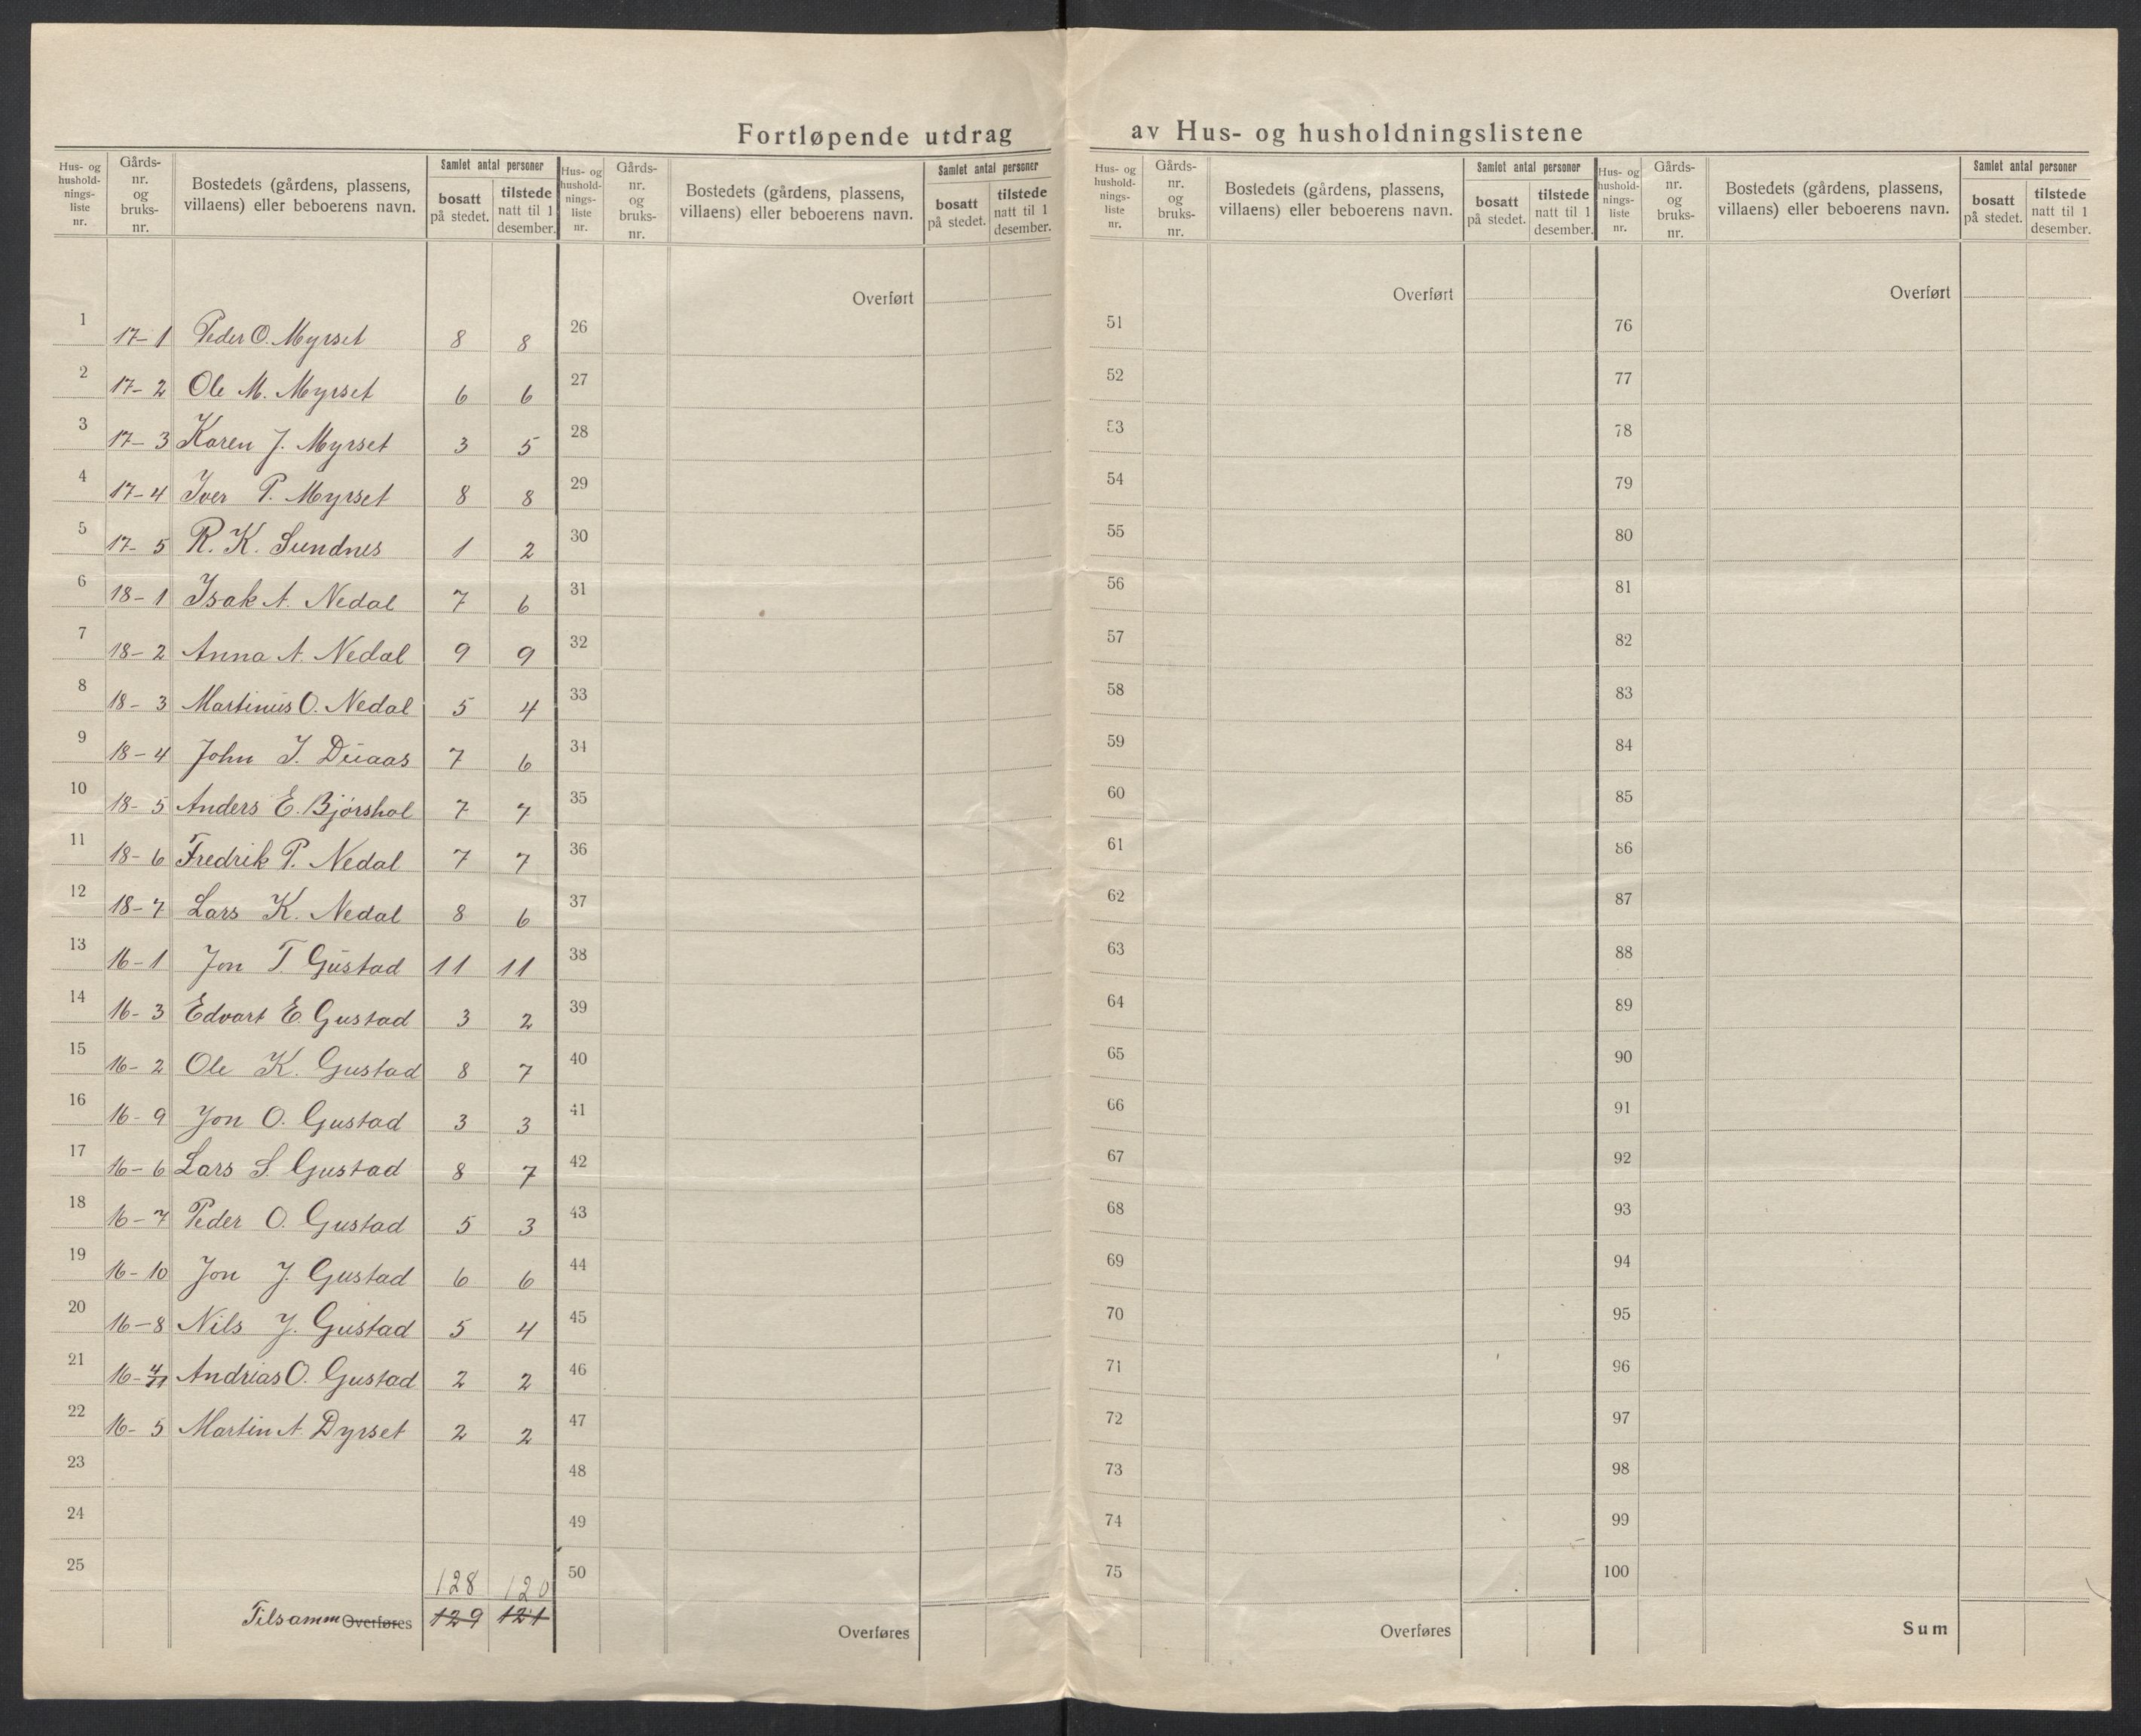 Fortløpende utdrag av Hus- og husholdningslistene
Hus- og hushold- nings- liste nr. Gårds- nr. og bruks- nr. Bostedets (gårdens, plassens, villaens) eller beboerens navn. Samlet antal personer bosatt på stedet. tilstede natt til 1 desember.
Hus- og hushold- nings- liste nr. Gårds- nr. og bruks- nr. Bostedets (gårdens, plassens, villaens) eller beboerens navn. Samlet antal personer bosatt på stedet. tilstede natt til 1 desember.
Hus- og hushold- nings- liste nr. Gårds- nr. og bruks- nr. Bostedets (gårdens, plassens, villaens) eller beboerens navn. Samlet antal personer bosatt på stedet. tilstede natt til 1 desember.
Hus- og hushold- nings- liste nr. Gårds- nr. og bruks- nr. Bostedets (gårdens, plassens, villaens) eller beboerens navn. Samlet antal personer bosatt på stedet. tilstede natt til 1 desember.
1 17-1 Peder O. Myrset 8 8
2 17-2 Ole M. Myrset 6 6
3 17-3 Karen J. Myrset 3 5
4 17-4 Iver P. Myrset 8 8
5 17-5 R. K. Sundnes 1 2
6 18-1 Isak A. Nedal 7 6
7 18-2 Anna A. Nedal 9 9
8 18-3 Martinus O. Nedal 5 4
9 18-4 John I. Duaas 7 6
10 18-5 Anders E. Bjørshol 7 7
11 18-6 Fredrik P. Nedal 7 7
12 18-7 Lars K. Nedal 8 6
13 16-1 Jon T. Gustad 11 11
14 16-3 Edvart E. Gustad 3 2
15 16-2 Ole K. Gustad 8 7
16 16-9 Jon O. Gustad 3 3
17 16-6 Lars S. Gustad 8 7
18 16-7 Peder O. Gustad 5 3
19 16-10 Jon J. Gustad 6 6
20 16-8 Nils J. Gustad 5 4
21 16-4/11 Andrias O. Gustad 2 2
22 16-5 Martin A. Dyrset 2 2
23
24
25
128 120
Tilsamm Overføres 129 121
Overført
26
27
28
29
30
31
32
33
34
35
36
37
38
39
40
41
42
43
44
45
46
47
48
49
50
Overføres
Overført
51
52
53
54
55
56
57
58
59
60
61
62
63
64
65
66
67
68
69
70
71
72
73
74
75
Overføres
Overført
76
77
78
79
80
81
82
83
84
85
86
87
88
89
90
91
92
93
94
95
96
97
98
99
100
Sum